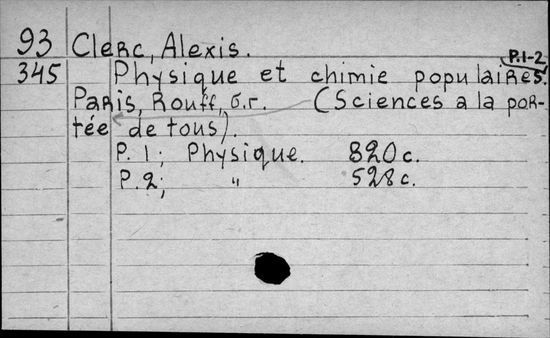 93 Clerc, Alexis.
P.1-2
345 Physique et chimie populaires.
Paris, Rouff, б.г. (Sciences a la por-
tée de tous).
P. 1; Physique. 820 с.
P. 2; " 528 с.